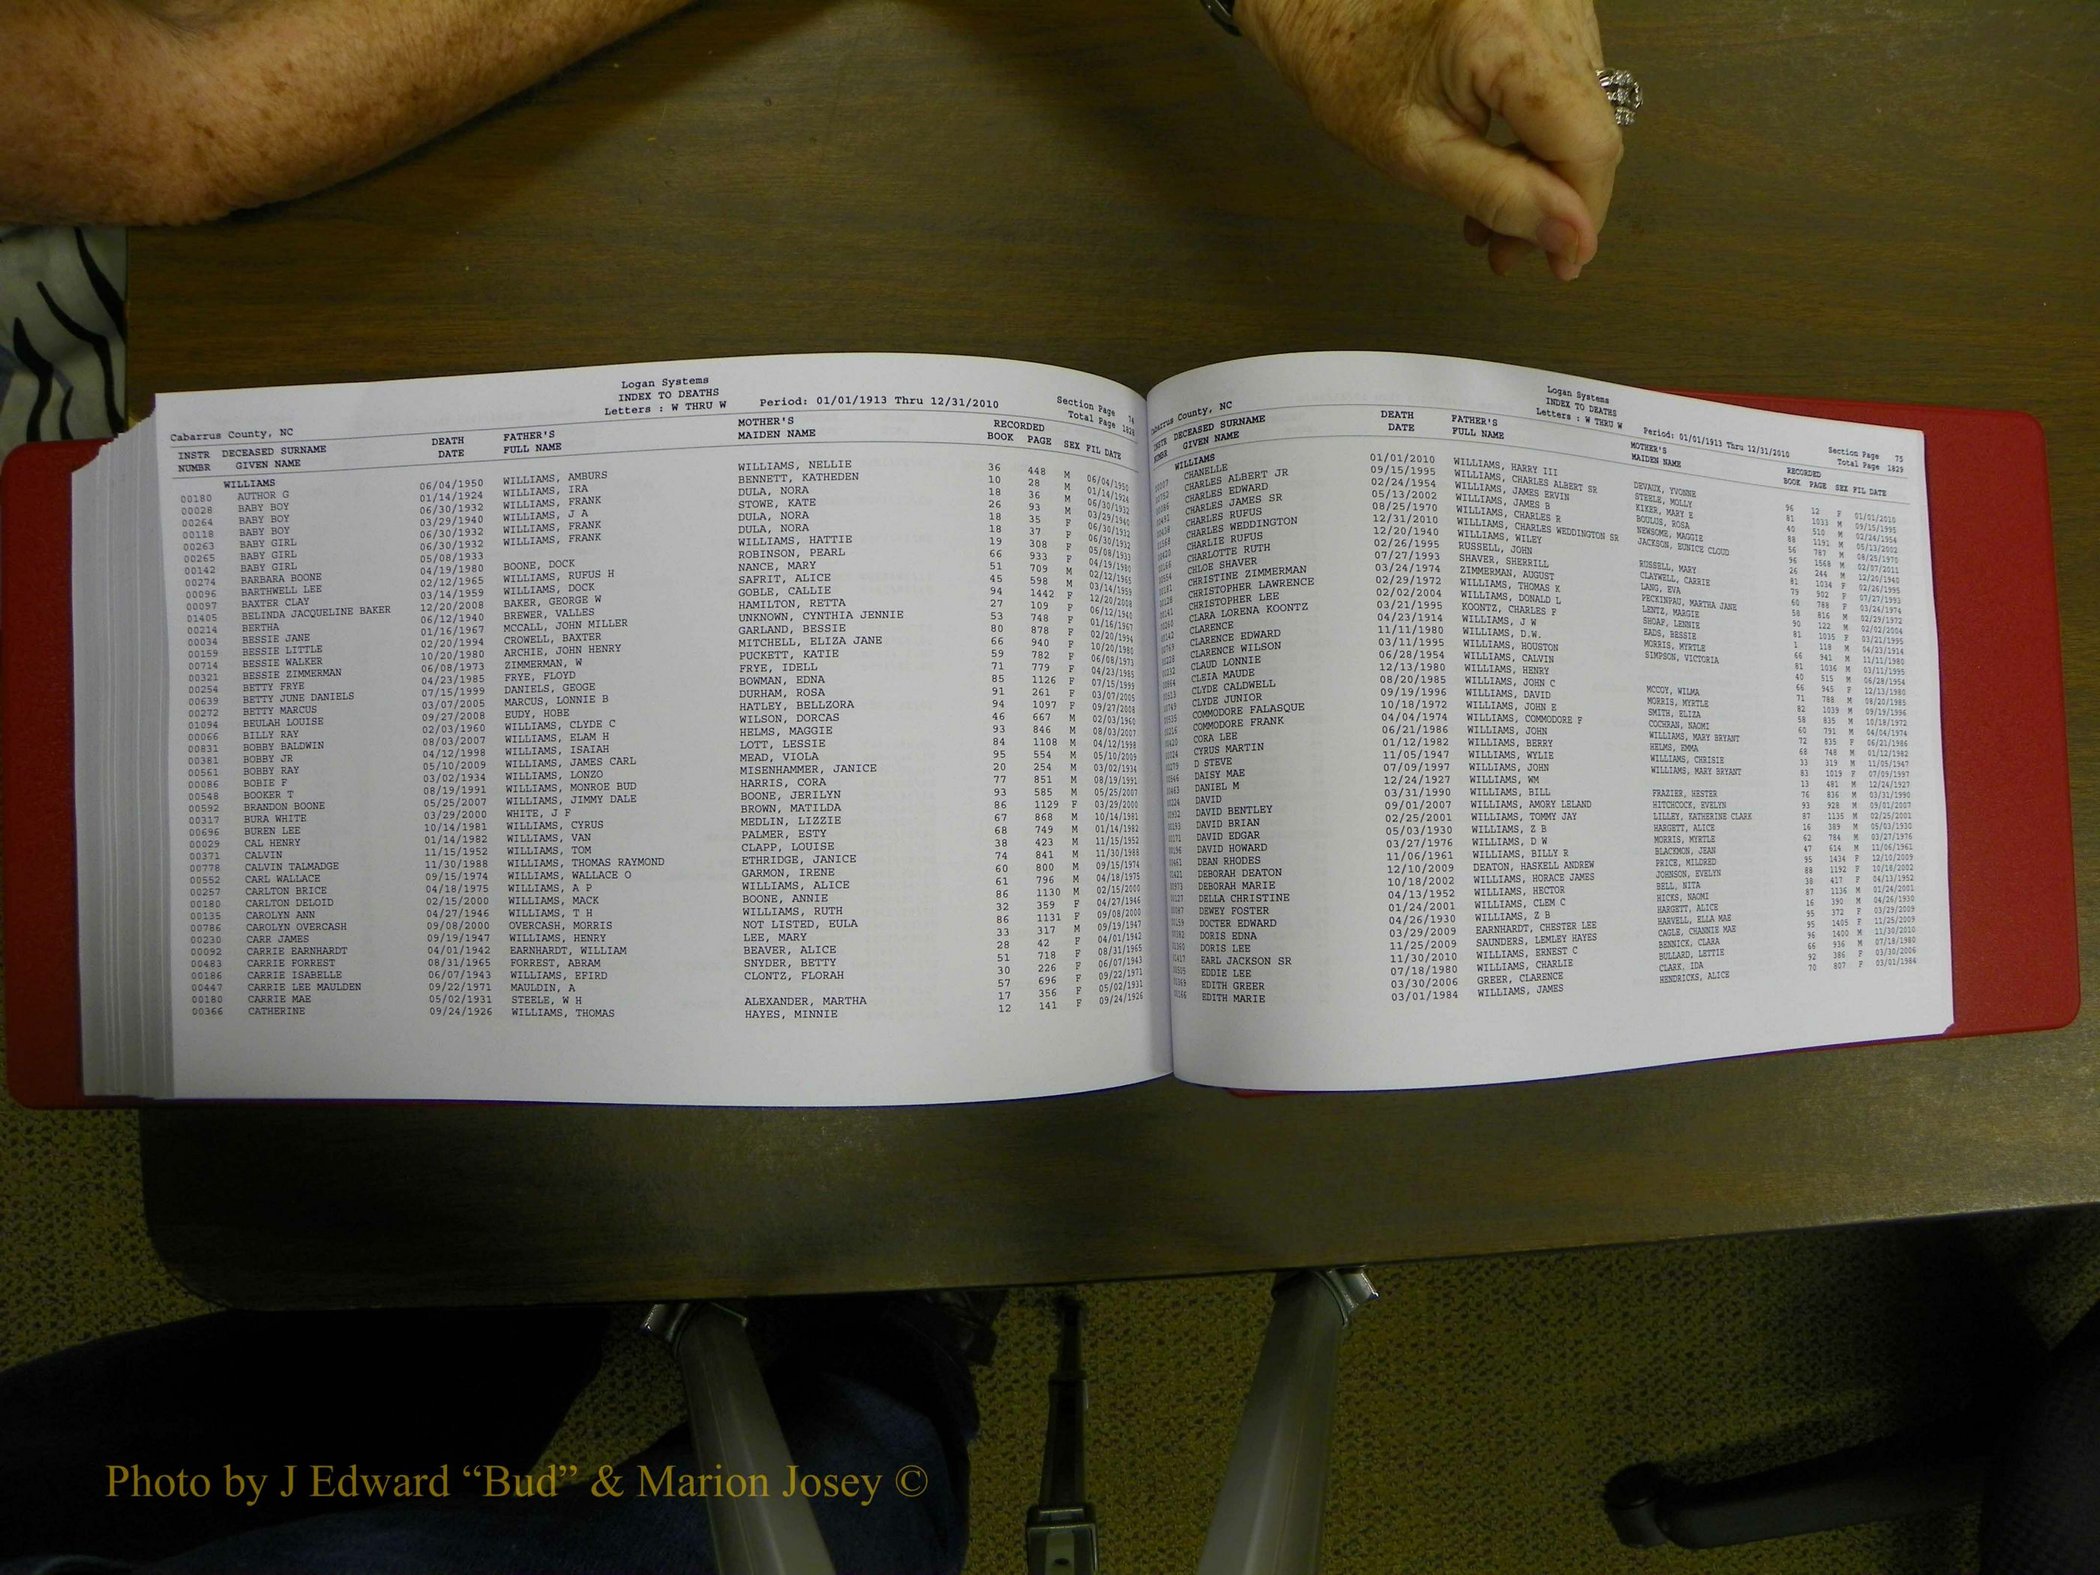 Logan Systems
INDEX TO DEATHS
Letters : W THRU W Period: 01/01/1913 Thru 12/31/2010
Section Page 74
Total Page 1828
Cabarrus County, NC
INSTR DECEASED SURNAME DEATH FATHER'S MOTHER'S RECORDED
NUMBR GIVEN NAME DATE FULL NAME MAIDEN NAME BOOK PAGE SEX FIL DATE
WILLIAMS
00180 AUTHOR G 06/04/1950 WILLIAMS, AMBURS WILLIAMS, NELLIE 36 448 M 06/04/1950
00028 BABY BOY 01/14/1924 WILLIAMS, IRA BENNETT, KATHEDEN 10 28 M 01/14/1924
00264 BABY BOY 06/30/1932 WILLIAMS, FRANK DULA, NORA 18 36 M 06/30/1932
00118 BABY BOY 03/29/1940 WILLIAMS, J A STOWE, KATE 26 93 M 03/29/1940
00263 BABY GIRL 06/30/1932 WILLIAMS, FRANK DULA, NORA 18 35 F 06/30/1932
00265 BABY GIRL 06/30/1932 WILLIAMS, FRANK DULA, NORA 18 37 F 06/30/1932
00142 BABY GIRL 05/08/1933 WILLIAMS, HATTIE 19 308 F 05/08/1933
00274 BARBARA BOONE 04/19/1980 BOONE, DOCK ROBINSON, PEARL 66 933 F 04/19/1980
00096 BARTHWELL LEE 02/12/1965 WILLIAMS, RUFUS H NANCE, MARY 51 709 M 02/12/1965
00097 BAXTER CLAY 03/14/1959 WILLIAMS, DOCK SAFRIT, ALICE 45 598 M 03/14/1959
01405 BELINDA JACQUELINE BAKER 12/20/2008 BAKER, GEORGE W GOBLE, CALLIE 94 1442 F 12/20/2008
00214 BERTHA 06/12/1940 BREWER, VALLES HAMILTON, RETTA 27 109 F 06/12/1940
00034 BESSIE JANE 01/16/1967 MCCALL, JOHN MILLER UNKNOWN, CYNTHIA JENNIE 53 748 F 01/16/1967
00159 BESSIE LITTLE 02/20/1994 CROWELL, BAXTER GARLAND, BESSIE 80 878 F 02/20/1994
00714 BESSIE WALKER 10/20/1980 ARCHIE, JOHN HENRY MITCHELL, ELIZA JANE 66 940 F 10/20/1980
00321 BESSIE ZIMMERMAN 06/08/1973 ZIMMERMAN, W PUCKETT, KATIE 59 782 F 06/08/1973
00254 BETTY FRYE 04/23/1985 FRYE, FLOYD FRYE, IDELL 71 779 F 04/23/1985
00639 BETTY JUNE DANIELS 07/15/1999 DANIELS, GEOGE BOWMAN, EDNA 85 1126 F 07/15/1999
00272 BETTY MARCUS 03/07/2005 MARCUS, LONNIE B DURHAM, ROSA 91 261 F 03/07/2005
01094 BEULAH LOUISE 09/27/2008 EUDY, HOBE HATLEY, BELLZORA 94 1097 F 09/27/2008
00066 BILLY RAY 02/03/1960 WILLIAMS, CLYDE C WILSON, DORCAS 46 667 M 02/03/1960
00831 BOBBY BALDWIN 08/03/2007 WILLIAMS, ELAM H HELMS, MAGGIE 93 846 M 08/03/2007
00381 BOBBY JR 04/12/1998 WILLIAMS, ISAIAH LOTT, LESSIE 84 1108 M 04/12/1998
00561 BOBBY RAY 05/10/2009 WILLIAMS, JAMES CARL MEAD, VIOLA 95 554 M 05/10/2009
00086 BOBIE F 03/02/1934 WILLIAMS, LONZO MISENHAMMER, JANICE 20 254 M 03/02/1934
00548 BOOKER T 08/19/1991 WILLIAMS, MONROE BUD HARRIS, CORA 77 851 M 08/19/1991
00592 BRANDON BOONE 05/25/2007 WILLIAMS, JIMMY DALE BOONE, JERILYN 93 585 M 05/25/2007
00317 BURA WHITE 03/29/2000 WHITE, J F BROWN, MATILDA 86 1129 F 03/29/2000
00696 BUREN LEE 10/14/1981 WILLIAMS, CYRUS MEDLIN, LIZZIE 67 868 M 10/14/1981
00029 CAL HENRY 01/14/1982 WILLIAMS, VAN PALMER, ESTY 68 749 M 01/14/1982
00371 CALVIN 11/15/1952 WILLIAMS, TOM CLAPP, LOUISE 38 423 M 11/15/1952
00778 CALVIN TALMADGE 11/30/1988 WILLIAMS, THOMAS RAYMOND ETHRIDGE, JANICE 74 841 M 11/30/1988
00552 CARL WALLACE 09/15/1974 WILLIAMS, WALLACE O GARMON, IRENE 60 800 M 09/15/1974
00257 CARLTON BRICE 04/18/1975 WILLIAMS, A P WILLIAMS, ALICE 61 796 M 04/18/1975
00180 CARLTON DELOID 02/15/2000 WILLIAMS, MACK BOONE, ANNIE 86 1130 M 02/15/2000
00135 CAROLYN ANN 04/27/1946 WILLIAMS, T H WILLIAMS, RUTH 32 359 F 04/27/1946
00786 CAROLYN OVERCASH 09/08/2000 OVERCASH, MORRIS NOT LISTED, EULA 86 1131 F 09/08/2000
00230 CARR JAMES 09/19/1947 WILLIAMS, HENRY LEE, MARY 33 317 M 09/19/1947
00092 CARRIE EARNHARDT 04/01/1942 EARNHARDT, WILLIAM BEAVER, ALICE 28 42 F 04/01/1942
00483 CARRIE FORREST 08/31/1965 FORREST, ABRAM SNYDER, BETTY 51 718 F 08/31/1965
00186 CARRIE ISABELLE 06/07/1943 WILLIAMS, EFIRD CLONTZ, FLORAH 30 226 F 06/07/1943
00447 CARRIE LEE MAULDEN 09/22/1971 MAULDIN, A 57 696 F 09/22/1971
00180 CARRIE MAE 05/02/1931 STEELE, W H ALEXANDER, MARTHA 17 356 F 05/02/1931
00366 CATHERINE 09/24/1926 WILLIAMS, THOMAS HAYES, MINNIE 12 141 F 09/24/1926
Logan Systems
INDEX TO DEATHS
Letters : W THRU W Period: 01/01/1913 Thru 12/31/2010
Section Page 75
Total Page 1829
Cabarrus County, NC
INSTR DECEASED SURNAME DEATH FATHER'S MOTHER'S RECORDED
NUMBR GIVEN NAME DATE FULL NAME MAIDEN NAME BOOK PAGE SEX FIL DATE
WILLIAMS
CHANELLE 01/01/2010 WILLIAMS, HARRY III DEVAUX, YVONNE 96 12 F 01/01/2010
CHARLES ALBERT JR 09/15/1995 WILLIAMS, CHARLES ALBERT SR STEELE, MOLLY 81 1033 M 09/15/1995
CHARLES EDWARD 02/24/1954 WILLIAMS, JAMES ERVIN KIKER, MARY E 40 510 M 02/24/1954
CHARLES JAMES SR 05/13/2002 WILLIAMS, JAMES B BOULUS, ROSA 88 1191 M 05/13/2002
CHARLES RUFUS 08/25/1970 WILLIAMS, CHARLES R NEWSOME, MAGGIE 56 787 M 08/25/1970
CHARLES WEDDINGTON 12/31/2010 WILLIAMS, CHARLES WEDDINGTON SR JACKSON, EUNICE CLOUD 96 1568 M 02/07/2011
CHARLIE RUFUS 12/20/1940 WILLIAMS, WILEY 26 244 M 12/20/1940
CHARLOTTE RUTH 02/26/1995 RUSSELL, JOHN RUSSELL, MARY 81 1034 F 02/26/1995
CHLOE SHAVER 07/27/1993 SHAVER, SHERRILL CLAYWELL, CARRIE 79 902 F 07/27/1993
CHRISTINE ZIMMERMAN 03/24/1974 ZIMMERMAN, AUGUST LANG, EVA 60 788 F 03/24/1974
CHRISTOPHER LAWRENCE 02/29/1972 WILLIAMS, THOMAS K PECKINPAU, MARTHA JANE 58 816 M 02/29/1972
CHRISTOPHER LEE 02/02/2004 WILLIAMS, DONALD L LENTZ, MARGIE 90 122 M 02/02/2004
CLARA LORENA KOONTZ 03/21/1995 KOONTZ, CHARLES F SHOAF, LENNIE 81 1035 F 03/21/1995
CLARENCE 04/23/1914 WILLIAMS, J W EADS, BESSIE 1 118 M 04/23/1914
CLARENCE EDWARD 11/11/1980 WILLIAMS, D.W. MORRIS, MYRTLE 66 941 M 11/11/1980
CLARENCE WILSON 03/11/1995 WILLIAMS, HOUSTON SIMPSON, VICTORIA 81 1036 M 03/11/1995
CLAUD LONNIE 06/28/1954 WILLIAMS, CALVIN 40 515 M 06/28/1954
CLEIA MAUDE 12/13/1980 WILLIAMS, HENRY 66 945 F 12/13/1980
CLYDE CALDWELL 08/20/1985 WILLIAMS, JOHN C MCCOY, WILMA 71 788 M 08/20/1985
CLYDE JUNIOR 09/19/1996 WILLIAMS, DAVID MORRIS, MYRTLE 82 1039 M 09/19/1996
COMMODORE FALASQUE 10/18/1972 WILLIAMS, JOHN E SMITH, ELIZA 58 835 M 10/18/1972
COMMODORE FRANK 04/04/1974 WILLIAMS, COMMODORE F COCHRAN, NAOMI 60 791 M 04/04/1974
CORA LEE 06/21/1986 WILLIAMS, JOHN WILLIAMS, MARY BRYANT 72 835 F 06/21/1986
CYRUS MARTIN 01/12/1982 WILLIAMS, BERRY HELMS, EMMA 68 748 M 01/12/1982
D STEVE 11/05/1947 WILLIAMS, WYLIE WILLIAMS, CHRISIE 33 319 M 11/05/1947
DAISY MAE 07/09/1997 WILLIAMS, JOHN WILLIAMS, MARY BRYANT 83 1019 F 07/09/1997
DANIEL M 12/24/1927 WILLIAMS, WM 13 481 M 12/24/1927
DAVID 03/31/1990 WILLIAMS, BILL FRAZIER, HESTER 76 836 M 03/31/1990
DAVID BENTLEY 09/01/2007 WILLIAMS, AMORY LELAND HITCHCOCK, EVELYN 93 928 M 09/01/2007
DAVID BRIAN 02/25/2001 WILLIAMS, TOMMY JAY LILLEY, KATHERINE CLARK 87 1135 M 02/25/2001
DAVID EDGAR 05/03/1930 WILLIAMS, Z B HARGETT, ALICE 16 389 M 05/03/1930
DAVID HOWARD 03/27/1976 WILLIAMS, D W MORRIS, MYRTLE 62 784 M 03/27/1976
DEAN RHODES 11/06/1961 WILLIAMS, BILLY R BLACKMON, JEAN 47 614 M 11/06/1961
DEBORAH DEATON 12/10/2009 DEATON, HASKELL ANDREW PRICE, MILDRED 95 1434 F 12/10/2009
DEBORAH MARIE 10/18/2002 WILLIAMS, HORACE JAMES JOHNSON, EVELYN 88 1192 F 10/18/2002
DELLA CHRISTINE 04/13/1952 WILLIAMS, HECTOR BELL, NITA 38 417 F 04/13/1952
DEWEY FOSTER 01/24/2001 WILLIAMS, CLEM C HICKS, NAOMI 87 1136 M 01/24/2001
DOCTER EDWARD 04/26/1930 WILLIAMS, Z B HARGETT, ALICE 16 390 M 04/26/1930
DORIS EDNA 03/29/2009 EARNHARDT, CHESTER LEE HARVELL, ELLA MAE 95 372 F 03/29/2009
DORIS LEE 11/25/2009 SAUNDERS, LEMLEY HAYES CAGLE, CHANNIE MAE 95 1405 F 11/25/2009
EARL JACKSON SR 11/30/2010 WILLIAMS, ERNEST C BENNICK, CLARA 96 1400 M 11/30/2010
EDDIE LEE 07/18/1980 WILLIAMS, CHARLIE BULLARD, LETTIE 66 936 M 07/18/1980
EDITH GREER 03/30/2006 GREER, CLARENCE CLARK, IDA 92 386 F 03/30/2006
EDITH MARIE 03/01/1984 WILLIAMS, JAMES HENDRICKS, ALICE 70 807 F 03/01/1984
Photo by J Edward “Bud” & Marion Josey ©